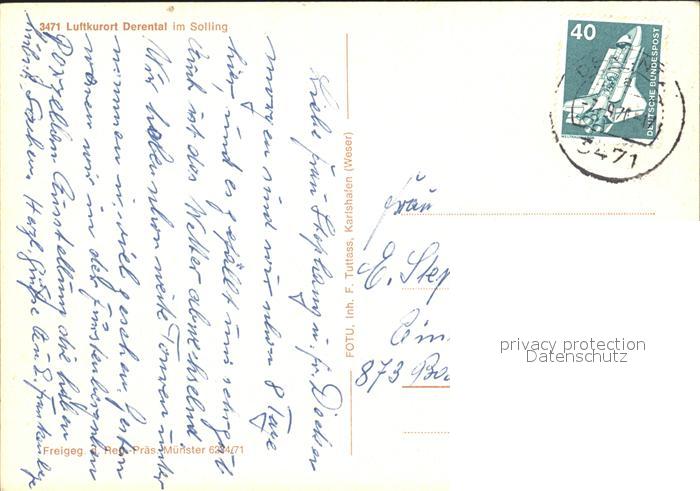 3471 Luftkurort Derental im Solling
Liebe Frau
morgen sind wir schon 8 Tage
hier, und es gefällt uns sehr gut
Auch ist das Wetter abwechselnd
Wir haben schon weite Touren unter
nommen u. viel gesehen. Gestern
waren wir in der Fürstenbergschen
Porzellan Ausstellung die haben
hübsche Sachen. Herzl. Grüße
Freigeg. d. Reg.-Präs. Münster 6284/71
FOTU, Inh. F. Tuttass, Karlshafen (Weser)
40
DEUTSCHE BUNDESPOST
3471
Frau
E. Step
873 Ba
privacy protection
Datenschutz